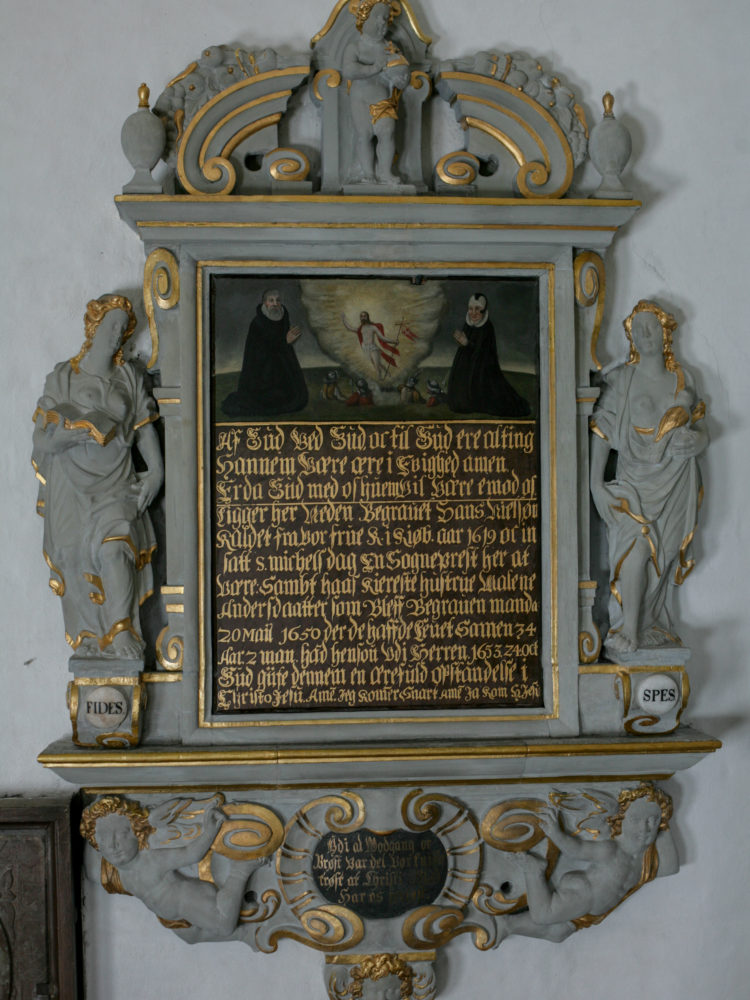 Af Gud Ved Gud oc til Gud ere alting
Hannem Være ære i Evighed amen
Er da Gud med os huem Vil Være emod os
Ligger her Neden Begrauet Hans Nielsøn
Kaldet fra vor frue K i Kiøb. aar 1619 oc in
satt S. michels dag En Sogneprest her at
Være. Sambt haas Kiereste hustrue Malene
Andersdaatter som Bleff Begrauen manda.
20 Maii 1650 der de haffde Leuet Samen 34
Aar 2 man. had hensou Vdi Herren 1653. 24 Oct
Gud giffe dennem en ærefuld opstandelse i
Christo Jesu. Ame. Jeg Komer Snart Ame Ja Kom H. Jesu
FIDES
SPES
Vdi al Modgang oc
Brøst Var det Vor
trøst at Christi
Har os